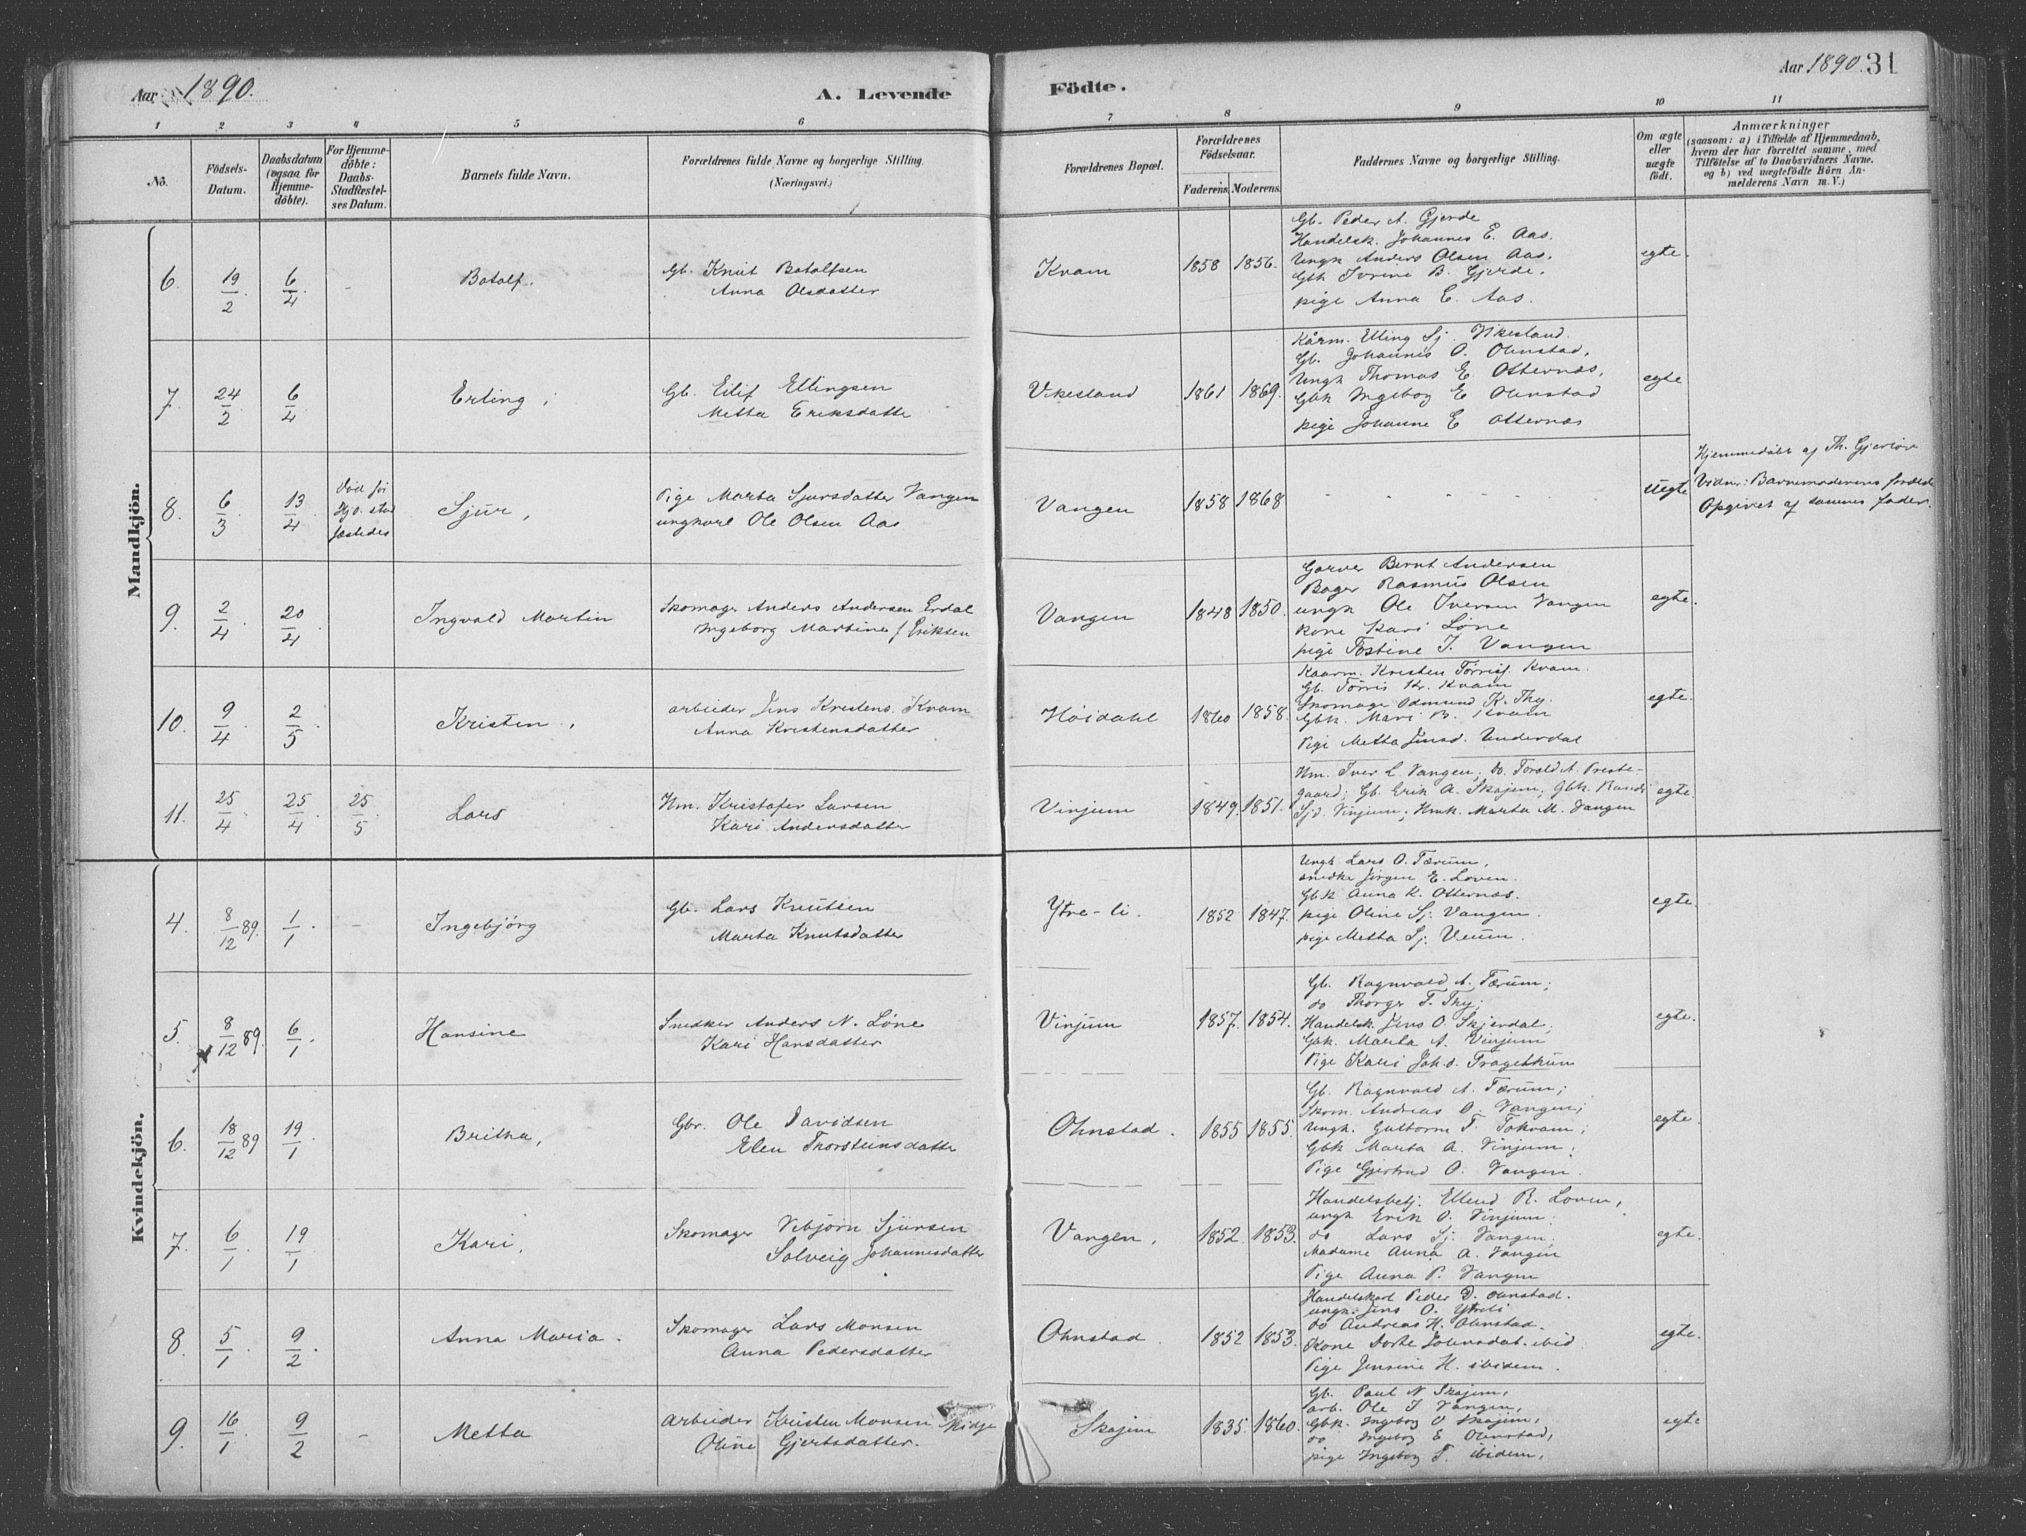 Aar 1890. A. Levende Födte. Aar 1890. 31
1 2 3 4 5 6 7 8 9 10 11
No. Födsels-Datum. Daabsdatum (ogsaa for Hjemme-döbte). For Hjemme-döbte: Daabs-Stadfæstel-ses Datum. Barnets fulde Navn. Forældrenes fulde Navne og borgerlige Stilling. (Næringsvei.) Forældrenes Bopæl. Forældrenes Födselsaar. Faderens. Moderens. Faddernes Navne og borgerlige Stilling. Om ægte eller uægte födt. Anmærkninger (saasom: a) i Tilfælde af Hjemmedaab, hvem der har forrettet samme, med Tilföielse af to Daabsvidners Navne, og b) ved uægtefödte Börn Anmelderens Navn m. V.)
Mandkjön.
6. 19/2 6/4 - Botolf. Gb. Knut Botolfsen
Anna Olsdatter
Kvam 1858 1856.
Gb. Peder A. Gjerde
Handelsk. Johannes E. Aas.
Ungk Anders Olsen Aas.
Gbk Ivrine B. Gjerde.
pige Anna E. Aas.
egte.
7. 24/2 6/4 Erling. Gb. Eilif Ellingsen
Metta Eriksdatte
Vikesland 1861 1869.
Kårm. Elling Sj. Vikesland.
Gb. Johannes O. Ohnstad.
Ungk Thomas E. Otternæs.
Gbk Ingebog E Ohnstad
pige Johanne E Otternæs
egte
8. 6/3 13/4 död för Hjd. stad fæstedes Sjur, Pige Marta Sjursdatter Vangen
ungkarl Ole Olsen Aas
Vangen 1858 1868 uegte
Hjemmedöbt af Th. Gjerlöv
Vidner: Barnemoderens foræld.
Opgivet af sammes fader.
9. 2/4 20/4 Ingvald Martin Skomager Anders Andersen Erdal
Ingeborg Martine f Eriksen
Vangen 1848 1850.
Garver Bernt Andersen
Bager Rasmus Olsen
ungk Ole Iversen Vangen
Kone Kari Löne
pige Tostine J. Vangen
egte.
10. 9/4 2/5 Kristen, arbeider Jens Kristens. Kvam
Anna Kristensdatter
Höidahl 1860 1858.
Kaarm. Kristen Törrisf. Kvam.
Gb. Törris Kr. Kvam
Skomage Odmund K. Thy.
Gbk. Mari B. Kvam
Pige Metta Jensd. Underdal
egte.
11. 25/4 25/4 25/5 Lars Hm. Kristofer Larsen
Kari Andersdatter
Vinjum 1849. 1851.
Hm. Iver L. Vangen; do. Torald A. Preste-
gaard; Gb. Erik A. Skajem; Gbk. Randi
Sjd. Vinjum; Hmk. Marta M. Vangen
egte.
Kvindekjön.
4. 8/12 89. 1/1 Ingebjörg Gb. Lars Knutsen
Marta Knutsdatter
Ytre-li. 1852 1847.
Ungk Lars O. Tærum,
snedke Jörgen E. Loven.
Gbk Anna K. Otternæs.
pige Oline Sj. Vangen.
pige Metta Sj. Veum.
egte.
5. 8/12 89. 6/1 Hansine Snedker Anders N. Löne
Kari Hansdatter
Vinjum 1857. 1854.
Gb. Ragnvald A. Tærum;
do Thorger T. Thy;
Handelsk. Jens O. Skjerdal,
Gbk. Marta A. Vinjum
Pige Kari Joh.d. Fragethun
egte.
6. 18/12 89 19/1 Britha, Gbr. Ole Davidsen
Elen Thorsteinsdatte
Ohnstad. 1855 1855.
Gb. Ragnvald A. Tærum;
Skom. Andreas O. Vangen;
Ungk. Guttorm T. Tokvam;
Gbk Marta A. Vinjum,
Pige Gjertrud O. Vangen.
egte.
7. 6/1 19/1 Kari, Skomager Vibjörn Sjursen
Solveig Johannesdatter
Vangen. 1852. 1853.
Handelsbetj. Ellend R. Loven,
ungk Erik O. Vinjum;
do Lars Sj. Vangen;
Madame Anna A. Vangen
Pige Anna P. Vangen
egte.
8. 5/1 9/2 Anna Maria. Skomager Lars Monsen
Anna Pedersdatter
Ohnstad 1852 1853.
Handelskarl Peder D. Ohnstad.
ungk. Jens O. Ytreli
do Andreas H. Ohnstad.
Kone Dorte Johnsdat. ibid
Pige Jensine H. ibidem.
egte.
9. 16/1 9/2 - Metta Arbeider Kristen Monsen
Oline Gjertsdatter.
Skajem 1835. 1860.
Gb. Paul N Skajem,
arb. Ole I Vangen,
Gbk. Ingebog O Skajem,
do Ingebog E Ohnstad,
pige Ingebog T. ibidem.
egte